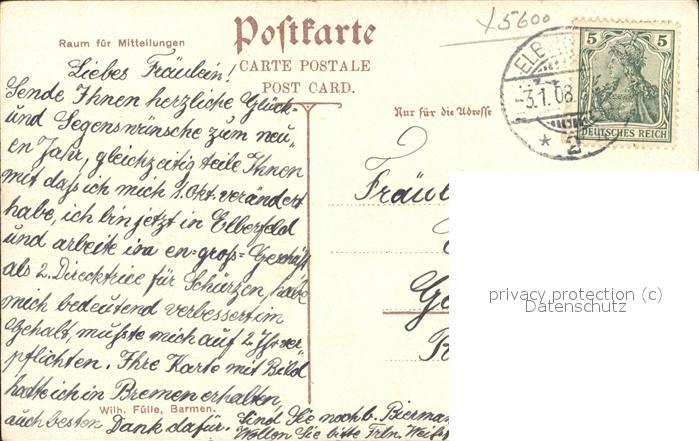 x5600
Postkarte
Raum für Mitteilungen
CARTE POSTALE
POST CARD.
Nur für die Adresse
ELB
-3.1.08
* 2
5 5
DEUTSCHES REICH
Liebes Fräulein!
Sende Ihnen herzliche Glück-
und Segenswünsche zum neu-
en Jahr, gleichzeitig teile Ihnen
mit daß ich mich 1. Okt. verändert
habe, ich bin jetzt in Elberfeld
und arbeite im en-groß-Geschäft
als 2. Direcktrice für Schürzen, habe
mich bedeutend verbessert im
Gehalt, mußte mich auf 2 Jhr ver
pflichten. Ihre Karte mit Bild
hatte ich in Bremen erhalten,
auch besten Dank dafür. Sind Sie noch b. Bierman
Wollen Sie bitte Frln.
Wilh. Fülle, Barmen.
Fräul
privacy protection (c)
Datenschutz